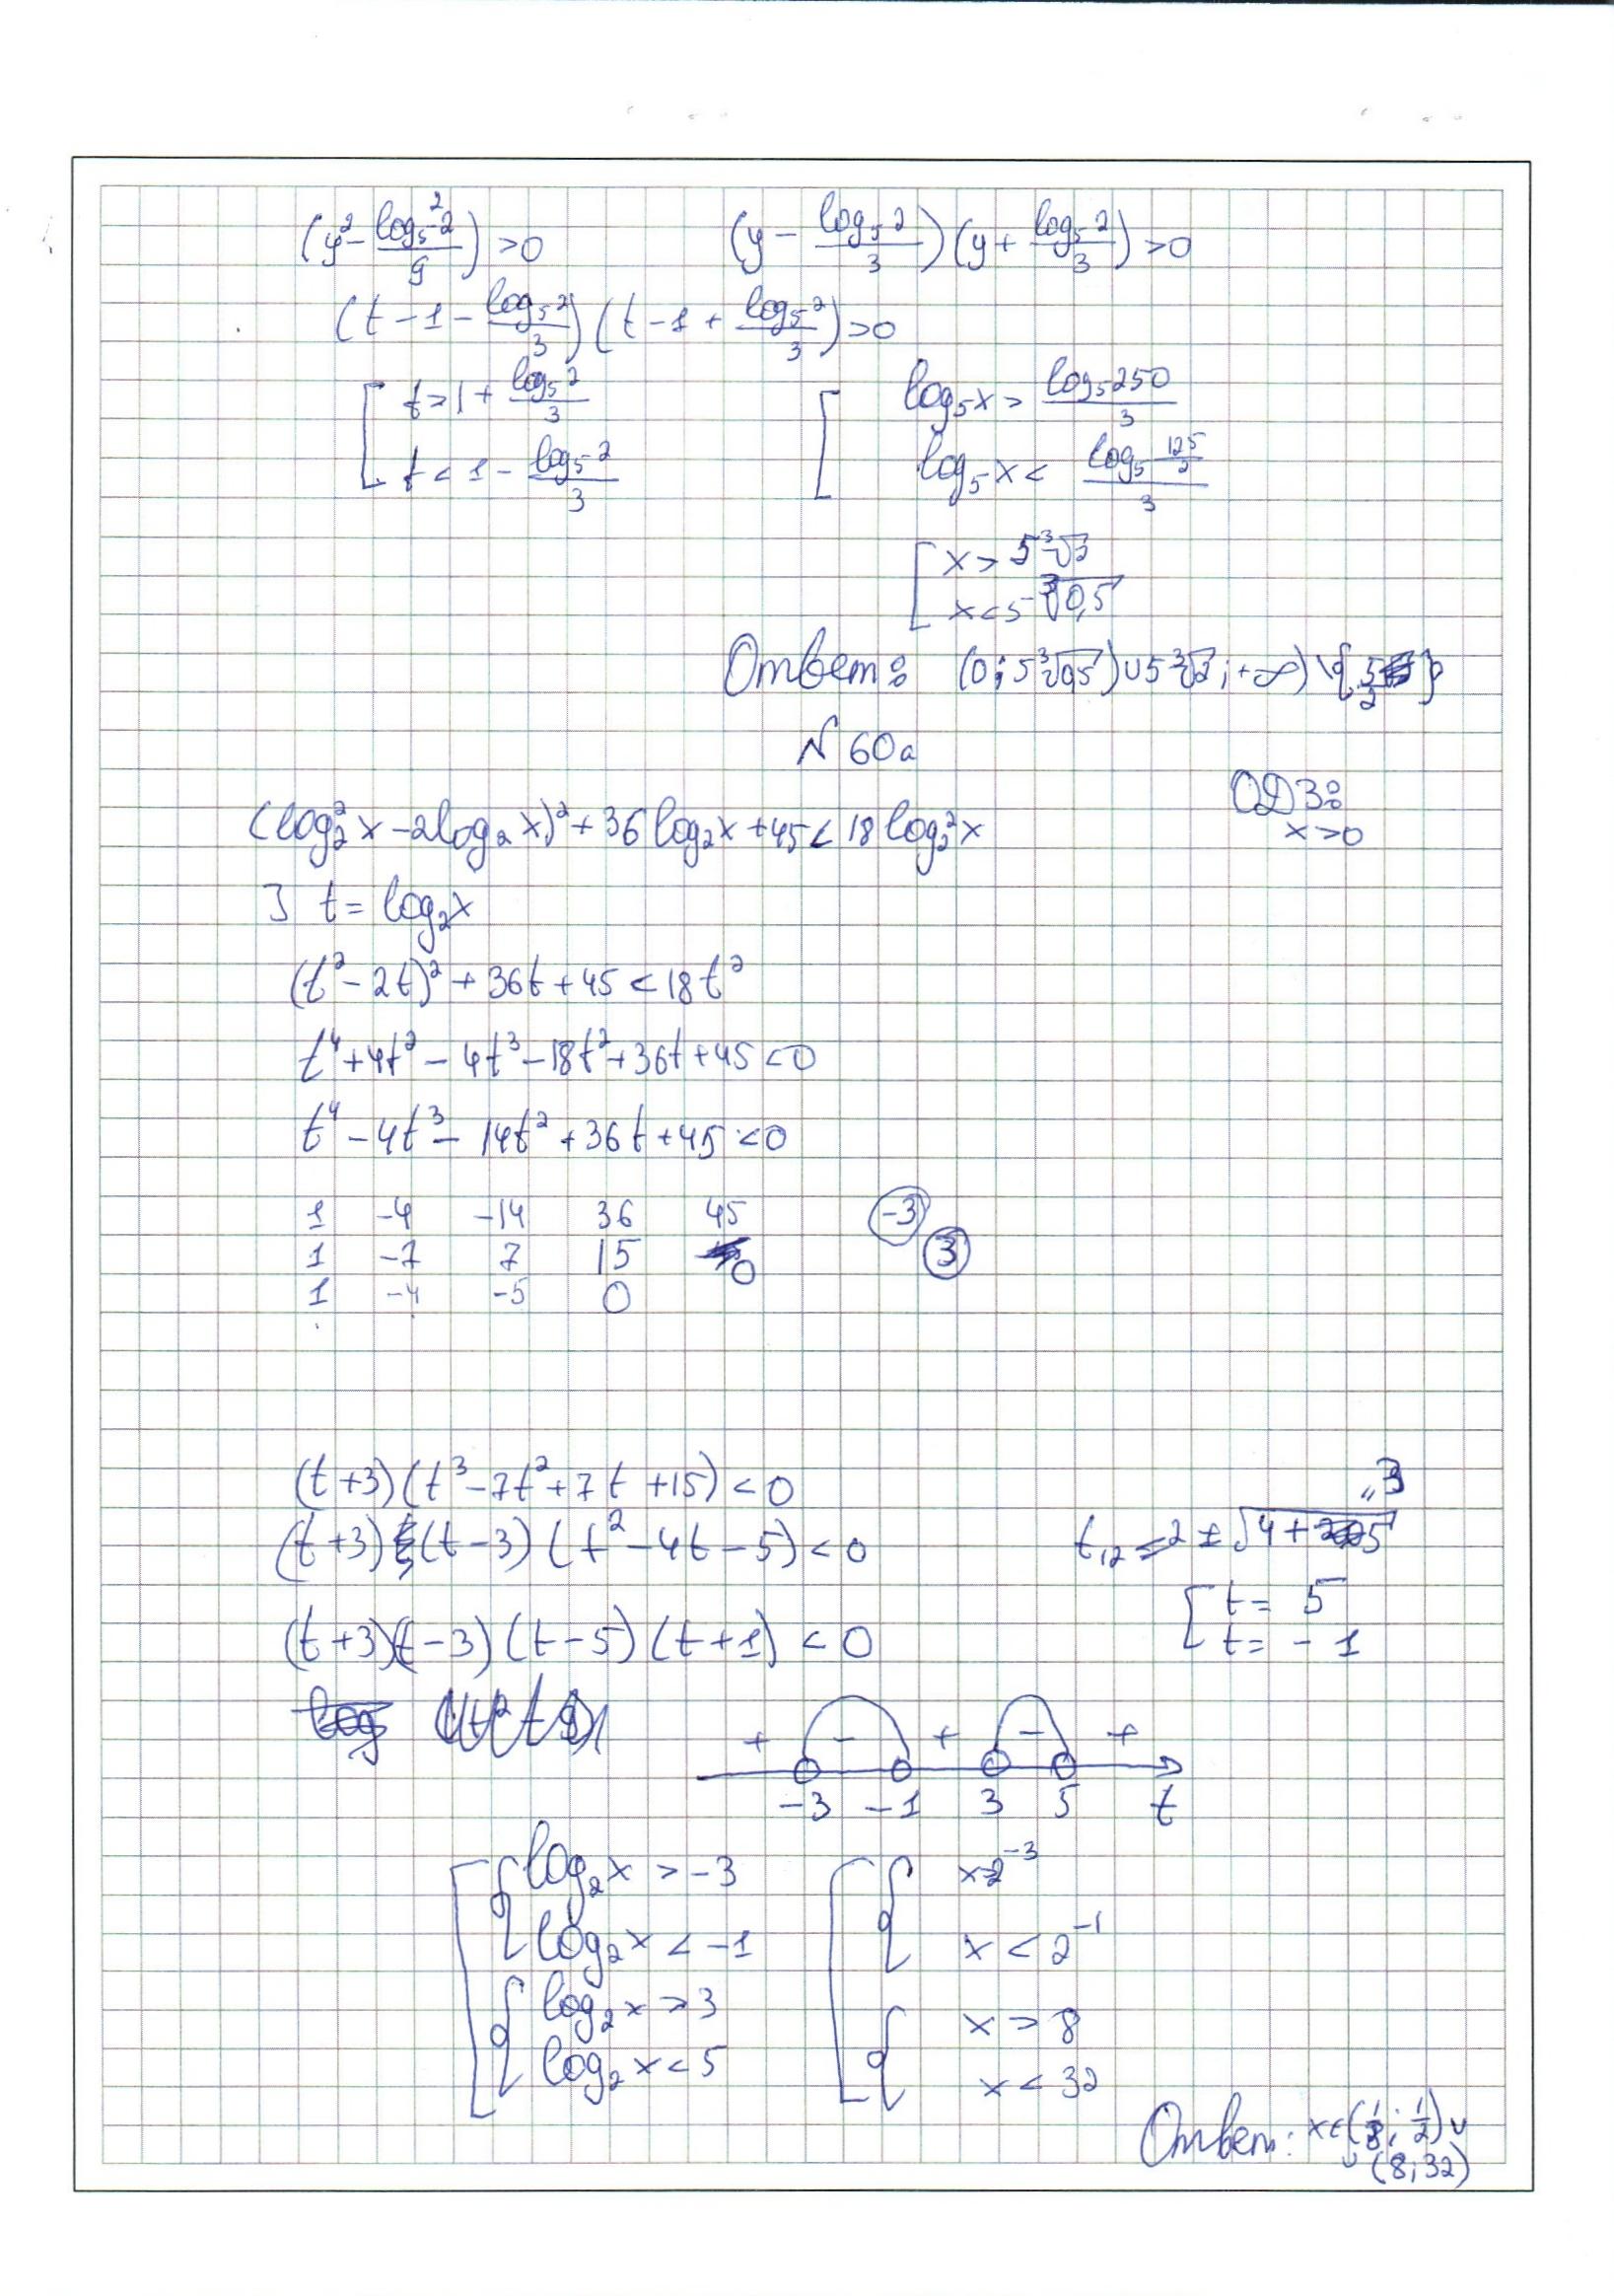 (y² - log₅²2/9) > 0    (y - log₅2/3)(y + log₅2/3) > 0
(t - 1 - log₅2/3)(t - 1 + log₅2/3) > 0
[ t > 1 + log₅2/3    [ log₅x > log₅250/3
[ t < 1 - log₅2/3    [ log₅x < log₅(125/2)/3
[ x > 5∛2
[ x < 5∛0,5
Ответ: (0; 5∛0,5) ∪ 5∛2; +∞) \ { }
N 60a
ОДЗ:
x > 0
(log₂²x - 2log₂x)² + 36log₂x + 45 < 18log₂²x
] t = log₂x
(t² - 2t)² + 36t + 45 < 18t²
t⁴ + 4t² - 4t³ - 18t² + 36t + 45 < 0
t⁴ - 4t³ - 14t² + 36t + 45 < 0
1 -4 -14 36 45    -3
1 -7 7 15 0    3
1 -4 -5 0
(t+3)(t³ - 7t² + 7t + 15) < 0    "3
(t+3)(t-3)(t² - 4t - 5) < 0    t₁,₂ = 2 ± √4+5
[ t = 5
[ t = -1
(t+3)(t-3)(t-5)(t+1) < 0
+ - + - +
-3 -1 3 5 t
[ { log₂x > -3    [ { x > 2⁻³
{ log₂x < -1    { x < 2⁻¹
{ log₂x > 3    { x > 8
{ log₂x < 5    { x < 32
Ответ: x ∈ (1/8; 1/2) ∪
∪ (8; 32)